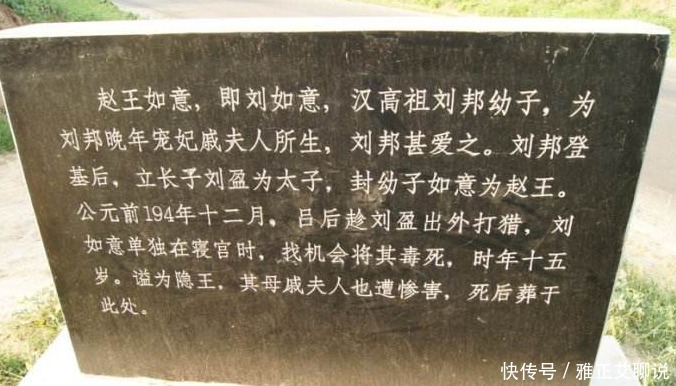 赵王如意，即刘如意，汉高祖刘邦幼子，为
刘邦晚年宠妃戚夫人所生，刘邦甚爱之。刘邦登
基后，立长子刘盈为太子，封幼子如意为赵王。
公元前194年十二月，吕后趁刘盈出外打猎，刘
如意单独在寝宫时，找机会将其毒死，时年十五
岁。谥为隐王，其母戚夫人也遭惨害，死后葬于
此处。
快传号/雅正文聊说